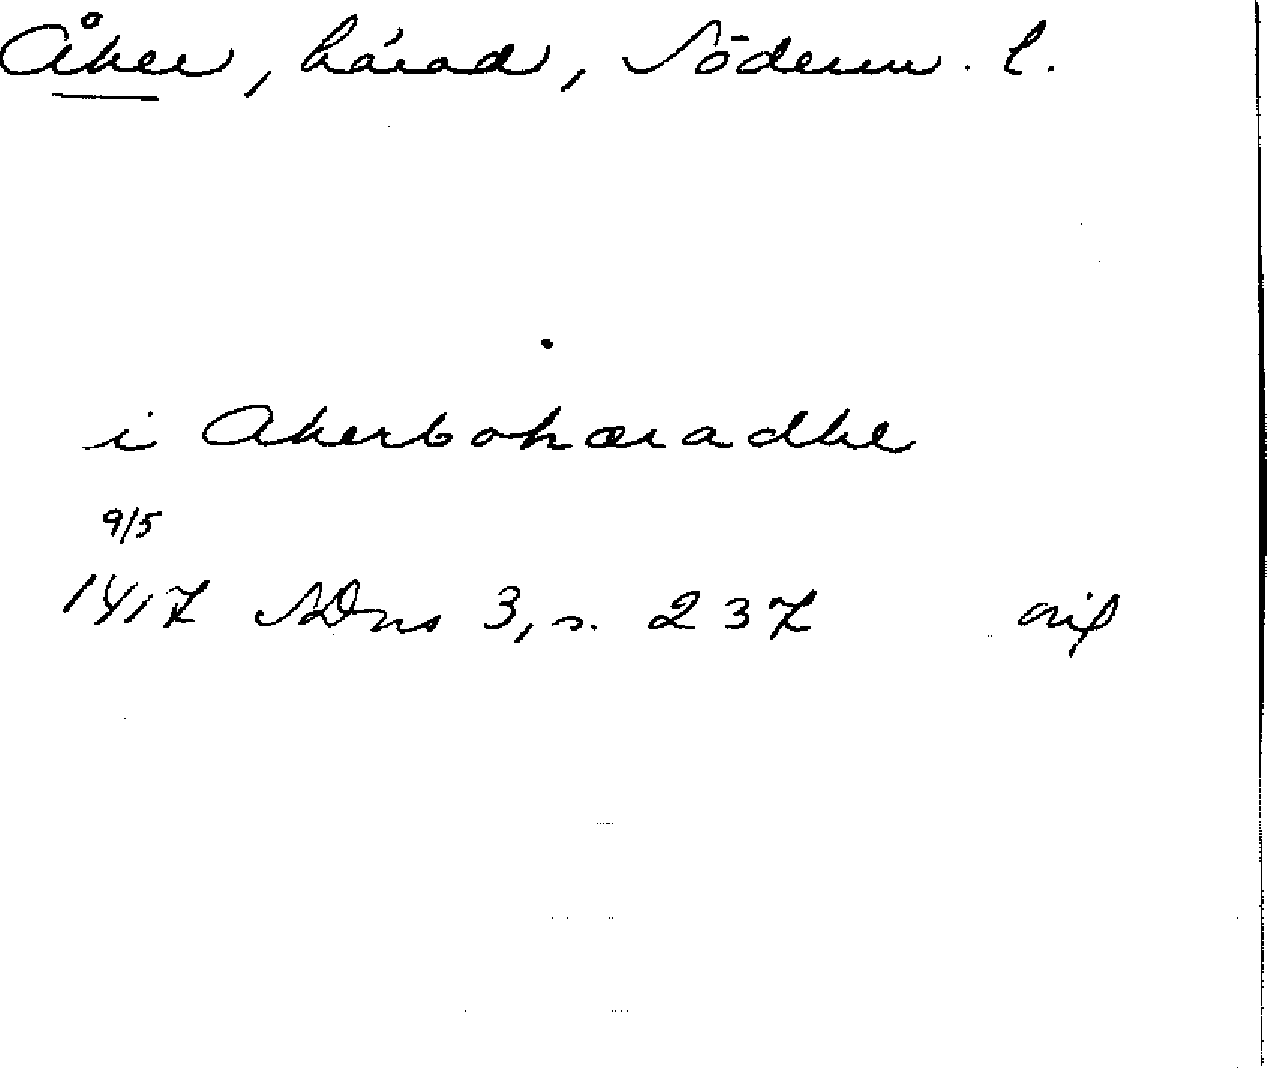 Åker, härad, Söderm. l.
i Akerbohæradhe
9/5
1417 SDns 3, s. 237 orig